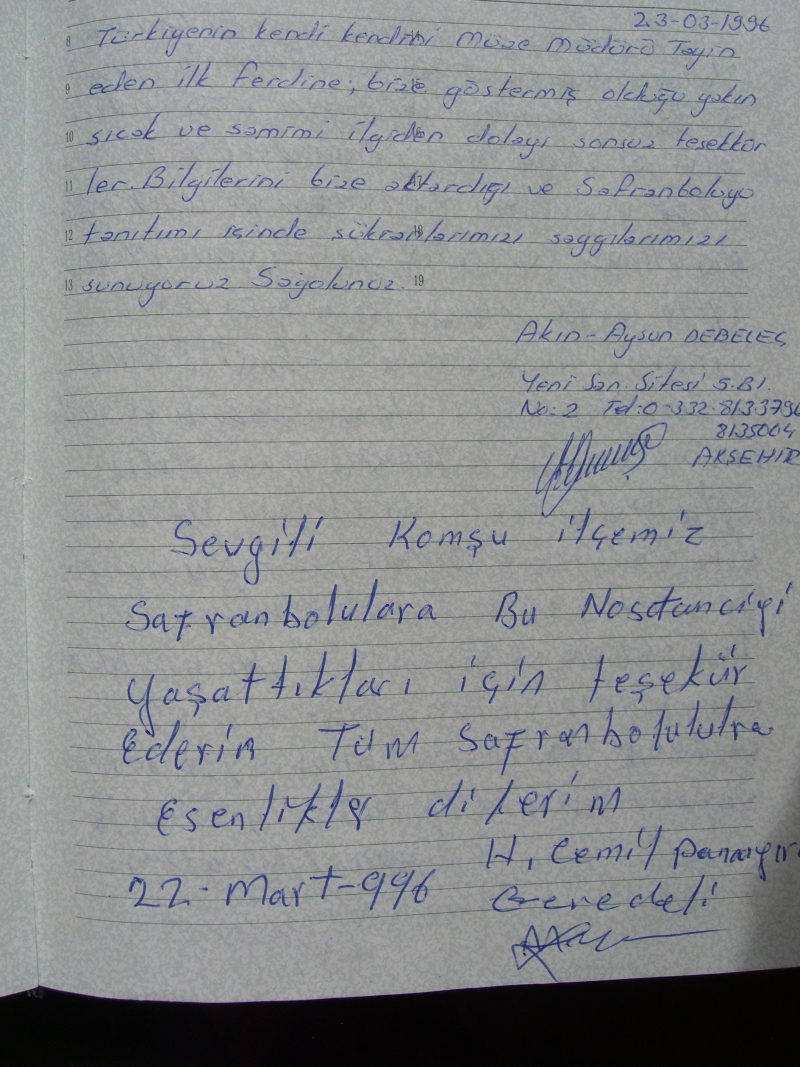 23-03-1996
8 Türkiyenin kendi kendini Müze Müdürü Tayin
9 eden ilk ferdine, bize göstermiş olduğu yakın
10 sıcak ve samimi ilgiden dolayı sonsuz teşekkür
11 ler. Bilgilerini bize aktardığı ve Safranboluyu
12 tanıtımı içinde şükranlarımızı saygılarımızı
13 sunuyoruz Sağolunuz. 19
Akın - Aysun DEBELEÇ
Yeni San. Sitesi 5.Bl.
No: 2 Tel: 0-332-8133796
8135004
AKŞEHİR
Sevgili Komşu ilçemiz
Safranbolulara Bu Nostanciyi
Yaşattıkları için teşekür
Ederim Tüm Safranbolululra
Esenlikler dilerim
H. Cemil
22-Mart-996 Geredeli